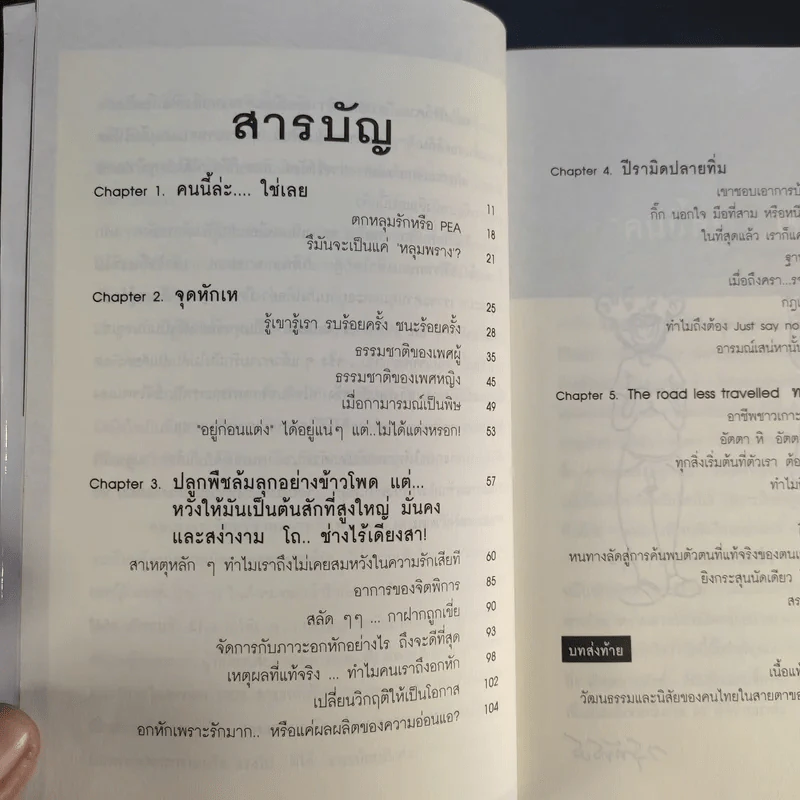 สารบัญ
Chapter 1. คนนี้ล่ะ.... ใช่เลย 11
ตกหลุมรักหรือ PEA 18
รึมันจะเป็นแค่ 'หลุมพราง'? 21
Chapter 2. จุดหักเห 25
รู้เขารู้เรา รบร้อยครั้ง ชนะร้อยครั้ง 28
ธรรมชาติของเพศผู้ 35
ธรรมชาติของเพศหญิง 45
เมื่อกามารมณ์เป็นพิษ 49
"อยู่ก่อนแต่ง" ได้อยู่แน่ๆ แต่..ไม่ได้แต่งหรอก! 53
Chapter 3. ปลูกพืชล้มลุกอย่างข้าวโพด แต่... 57
หวังให้มันเป็นต้นสักที่สูงใหญ่ มั่นคง
และสง่างาม โถ.. ช่างไร้เดียงสา!
สาเหตุหลัก ๆ ทำไมเราถึงไม่เคยสมหวังในความรักเสียที 60
อาการของจิตพิการ 85
สลัด ๆๆ ... กาฝากถูกเขี่ย 90
จัดการกับภาวะอกหักอย่างไร ถึงจะดีที่สุด 93
เหตุผลที่แท้จริง ... ทำไมคนเราถึงอกหัก 98
เปลี่ยนวิกฤติให้เป็นโอกาส 102
อกหักเพราะรักมาก.. หรือแค่ผลผลิตของความอ่อนแอ? 104
Chapter 4. ปีรามิดปลายทิ่ม
เขาชอบเอาการ
กิ๊ก นอกใจ มือที่สาม หรือ
ในที่สุดแล้ว เราก็
เมื่อถึงครา...
ทำไมถึงต้อง Just say no
อารมณ์เสน่หานั้น
Chapter 5. The road less travelled
อาชีพชาวเกาะ
อัตตา หิ อัตต
ทุกสิ่งเริ่มต้นที่ตัวเรา
ทำไม
หนทางลัดสู่การค้นพบตัวตนที่แท้จริงของ
ยิงกระสุนนัดเดียว
บทส่งท้าย
เนื้อแท้
วัฒนธรรมและนิสัยของคนไทยในสายตาของ